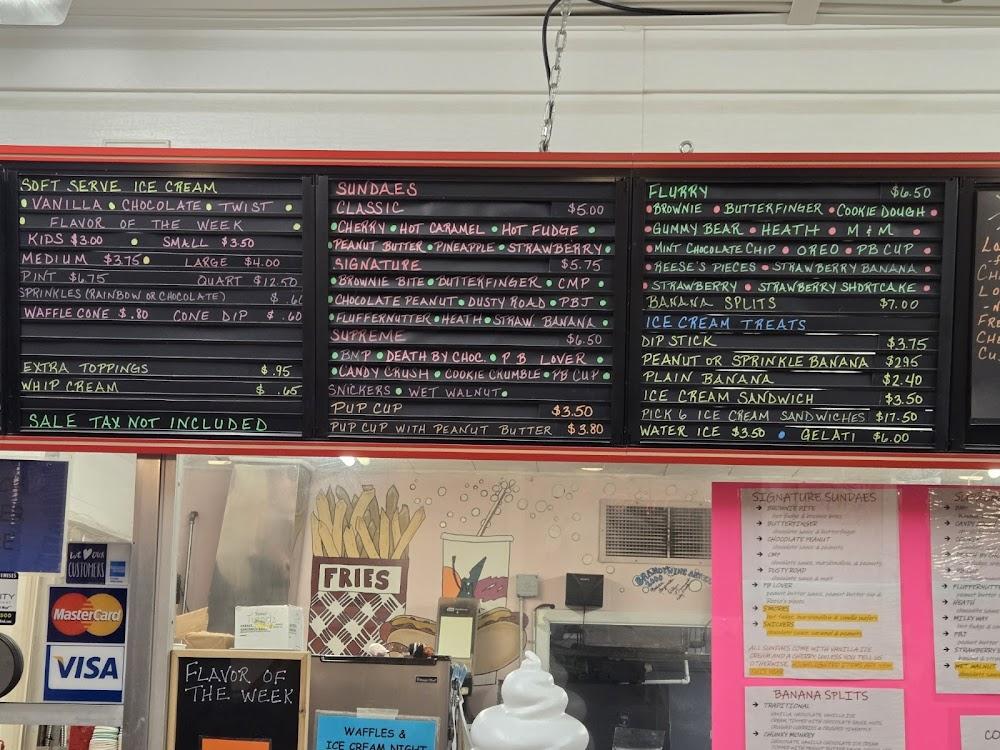 SOFT SERVE ICE CREAM
• VANILLA • CHOCOLATE • TWIST •
• FLAVOR OF THE WEEK •
KIDS $3.00 • SMALL $3.50
MEDIUM $3.75 • LARGE $4.00
PINT $6.75 QUART $12.50
SPRINKLES (RAINBOW OR CHOCOLATE) $ .60
WAFFLE CONE $ .80 CONE DIP $ .60
EXTRA TOPPINGS $ .95
WHIP CREAM $ .65
SALE TAX NOT INCLUDED
SUNDAES
CLASSIC $5.00
• CHERRY • HOT CARAMEL • HOT FUDGE •
PEANUT BUTTER • PINEAPPLE • STRAWBERRY •
SIGNATURE $5.75
• BROWNIE BITE • BUTTERFINGER • CMP •
• CHOCOLATE PEANUT • DUSTY ROAD • PBJ •
• FLUFFERNUTTER • HEATH • STRAW. BANANA •
SUPREME $6.50
• BMP • DEATH BY CHOC. • P B LOVER •
• CANDY CRUSH • COOKIE CRUMBLE • PB CUP •
SNICKERS • WET WALNUT •
PUP CUP $3.50
PUP CUP WITH PEANUT BUTTER $3.80
FLURRY $6.50
• BROWNIE • BUTTERFINGER • COOKIE DOUGH •
• GUMMY BEAR • HEATH • M & M •
• MINT CHOCOLATE CHIP • OREO • PB CUP •
• REESE'S PIECES • STRAWBERRY BANANA •
• STRAWBERRY • STRAWBERRY SHORTCAKE •
BANANA SPLITS $7.00
ICE CREAM TREATS
DIP STICK $3.75
PEANUT OR SPRINKLE BANANA $2.95
PLAIN BANANA $2.40
ICE CREAM SANDWICH $3.50
PICK 6 ICE CREAM SANDWICHES $17.50
WATER ICE $3.50 • GELATI $6.00
WE OUR
CUSTOMERS
MasterCard
VISA
FRIES
FLAVOR OF
THE WEEK
WAFFLES &
ICE CREAM NIGHT
SIGNATURE SUNDAES
→ BROWNIE BITE
hot fudge & brownie bites
→ BUTTERFINGER
chocolate sauce & butterfinger
→ CHOCOLATE PEANUT
chocolate sauce & peanuts
→ CMP
chocolate sauce, marshmallow, & peanuts
→ DUSTY ROAD
chocolate sauce & malt
→ PB LOVER
→ S'MORES
→ SNICKERS
chocolate sauce, caramel & peanuts
ALL SUNDAES COME WITH VANILLA ICE
CREAM AND A CHERRY UNLESS YOU TELL US
OTHERWISE.
BANANA SPLITS
→ TRADITIONAL
→ CHUNKY MONKEY
→ HEATH
→ MILKY WAY
→ PBJ
→ WET WALNUT